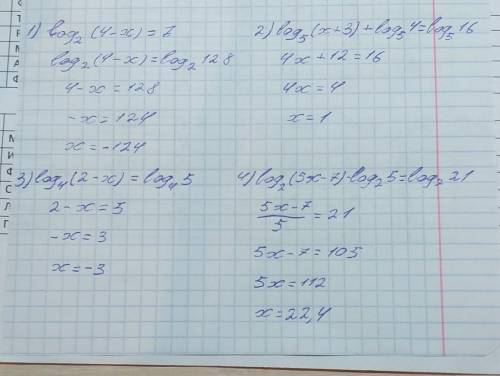 1) log₂(4-x)=7
log₂(4-x)=log₂128
4-x=128
-x=124
x=-124
2) log₅(x+3)+log₅4=log₅16
4x+12=16
4x=4
x=1
3) log₄(2-x)=log₄5
2-x=5
-x=3
x=-3
4) log₂(5x-7)-log₂5=log₂21
(5x-7)/5=21
5x-7=105
5x=112
x=22,4